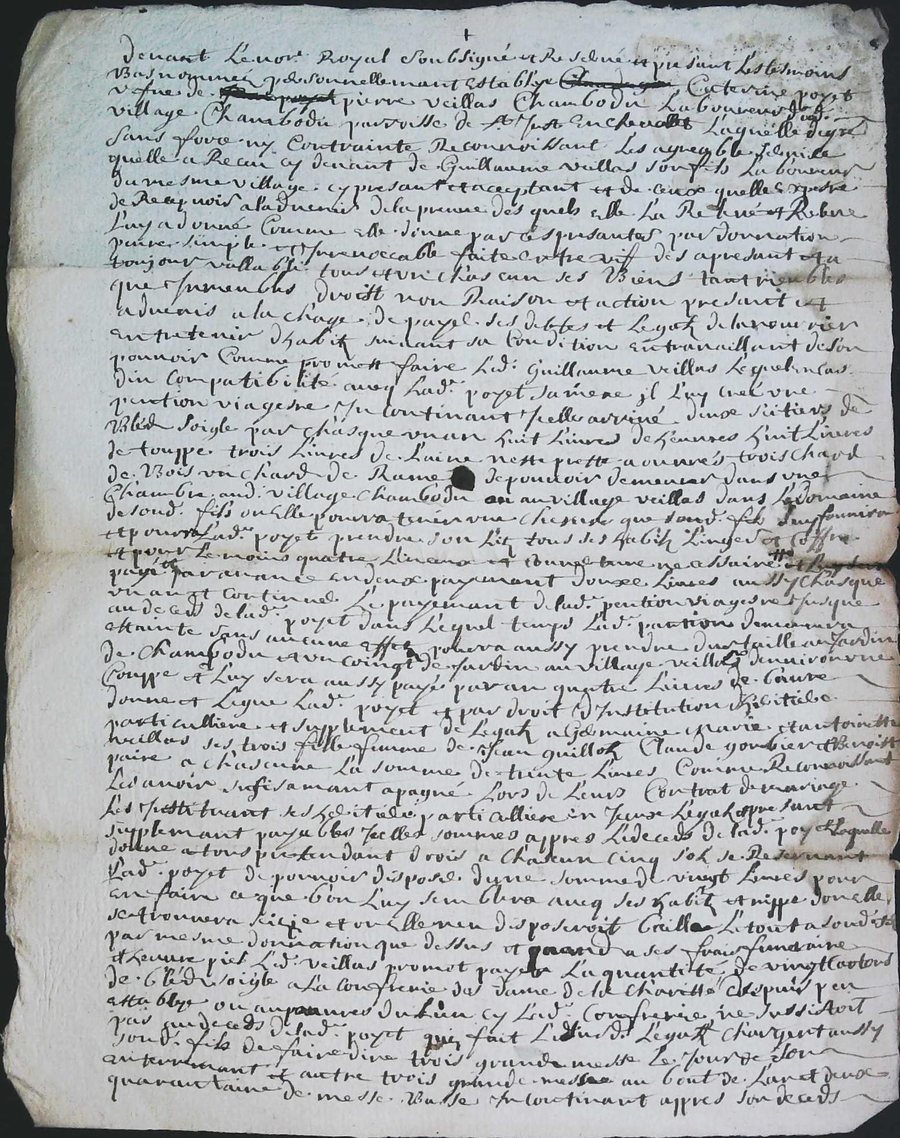 devant Le not.r Royal soubsigné et Reservé et present Les tesmoins
Bas nommes personnellemant establye Caterine poyet
vefve de pierre veillas Chambodu Laboureur du d.
village Chambodu parroisse de s.t Just En chevallet Laquelle de gré
sans force ny Contrainte Reconnoissant Les agreables services
quelle a Receu cy devant de Guillaume veillas son fils Laboureur
du mesme village cy present et acceptant et de ceux quelle Espere
de Recepvoir a laduenir de la preuve des quels elle La Relevé et Releve
Luy a donné Comme elle donne par ces presantes par donnation
pure simple et Irrevoccable faite entre vif des apresant et a
toujour vallable tous et vn chascun ses Biens tant meubles
que Immeubles droist non Raison et action presant et
aduenir a la charge de payer ses debtes et Legatz de la nourrir
Entretenir dhabitz suivant sa Condition En travaillant de son
pouvoir Comme promest faire Led. Guillaume veillas Lequel en cas
din Compatibilite aveq Lad. poyet sa mere il Luy cree vne
pention viagere In continant Icelle arrivé deux seitiers de
Bled soigle par chasque vn an huit Livres de heurres huit Livres
de touppe trois Livres de Laine nette preste a ouvrés trois chard
de Bois vn chard de Rame de pouvoir demeurer dans vne
Chambre aud. village Chambodu ou au village veillas dans Le domaine
de sond. fils ou Elle pourra tenir vne que sond. fils
et pourra Lad. poyet prendre son Lit tous ses habitz Linges et Coffre
et pour Le moins quatre Linceux et Couverture necessaire
payé par avance En deux payemant douxe Livres aussy chasque
vn an et Continuer Le payemant de lad. pention viagere Jusque
au deces de lad. poyet dans Lequel temps Lad. pantion demeurera
Estainte sans aucune Effet pourra aussy prendre du Jardin
de Chambodu et vn Coing de Jardin au village veillas denviron vne
Couppe et Luy sera aussy payé par an quatre Livres de beurre
donne et Legue Lad. poyet et par droit dInstitution hereditaire
particulliere et supplement de Legatz a Germaine marie et antoinette
veillas ses trois fille femme de Jean Guillot Claude gonbier et Benoist
paire a chascune La somme de trente Livres Comme Reconnoissant
Les avoir sufisamant apagné Lors de Leurs Contrat de mariage
Les Instituant ses heritiere particulliere In Iceux Legatz presant
supplemant payables Icelles sommes appres Le deceds de lad. poyet Laquelle
donne a tous pretendant drois a chascun Cinq solz se Reservant
Lad. poyet de pouvoir disposer dune somme de vingt Livres pour
En faire ce que bon Luy semblera aveq ses habitz et nippe donelle
se trouvera seizie et ou Elle nen disposeroit Le tout a sond. fils
par mesme donnation que dessus et quand a ses frais funeraire
et heuvre pies Led. veillas promet payer La quantité de vingt Cartons
de bled soigle a La Confrerie des dame de la charette depuis peu
Establye ou au pauvres du Lieu sy Lad. Confrerie ne sussistoit
pas au deceds de lad. poyet qui fait Led. Legatz Chargeant aussy
sond. fils de faire dire trois grande messe Le Jour de son
enterremant et autre trois grande messe au bout de Lan et deux
quarantaine de messe Basse Incontinant appres son deceds